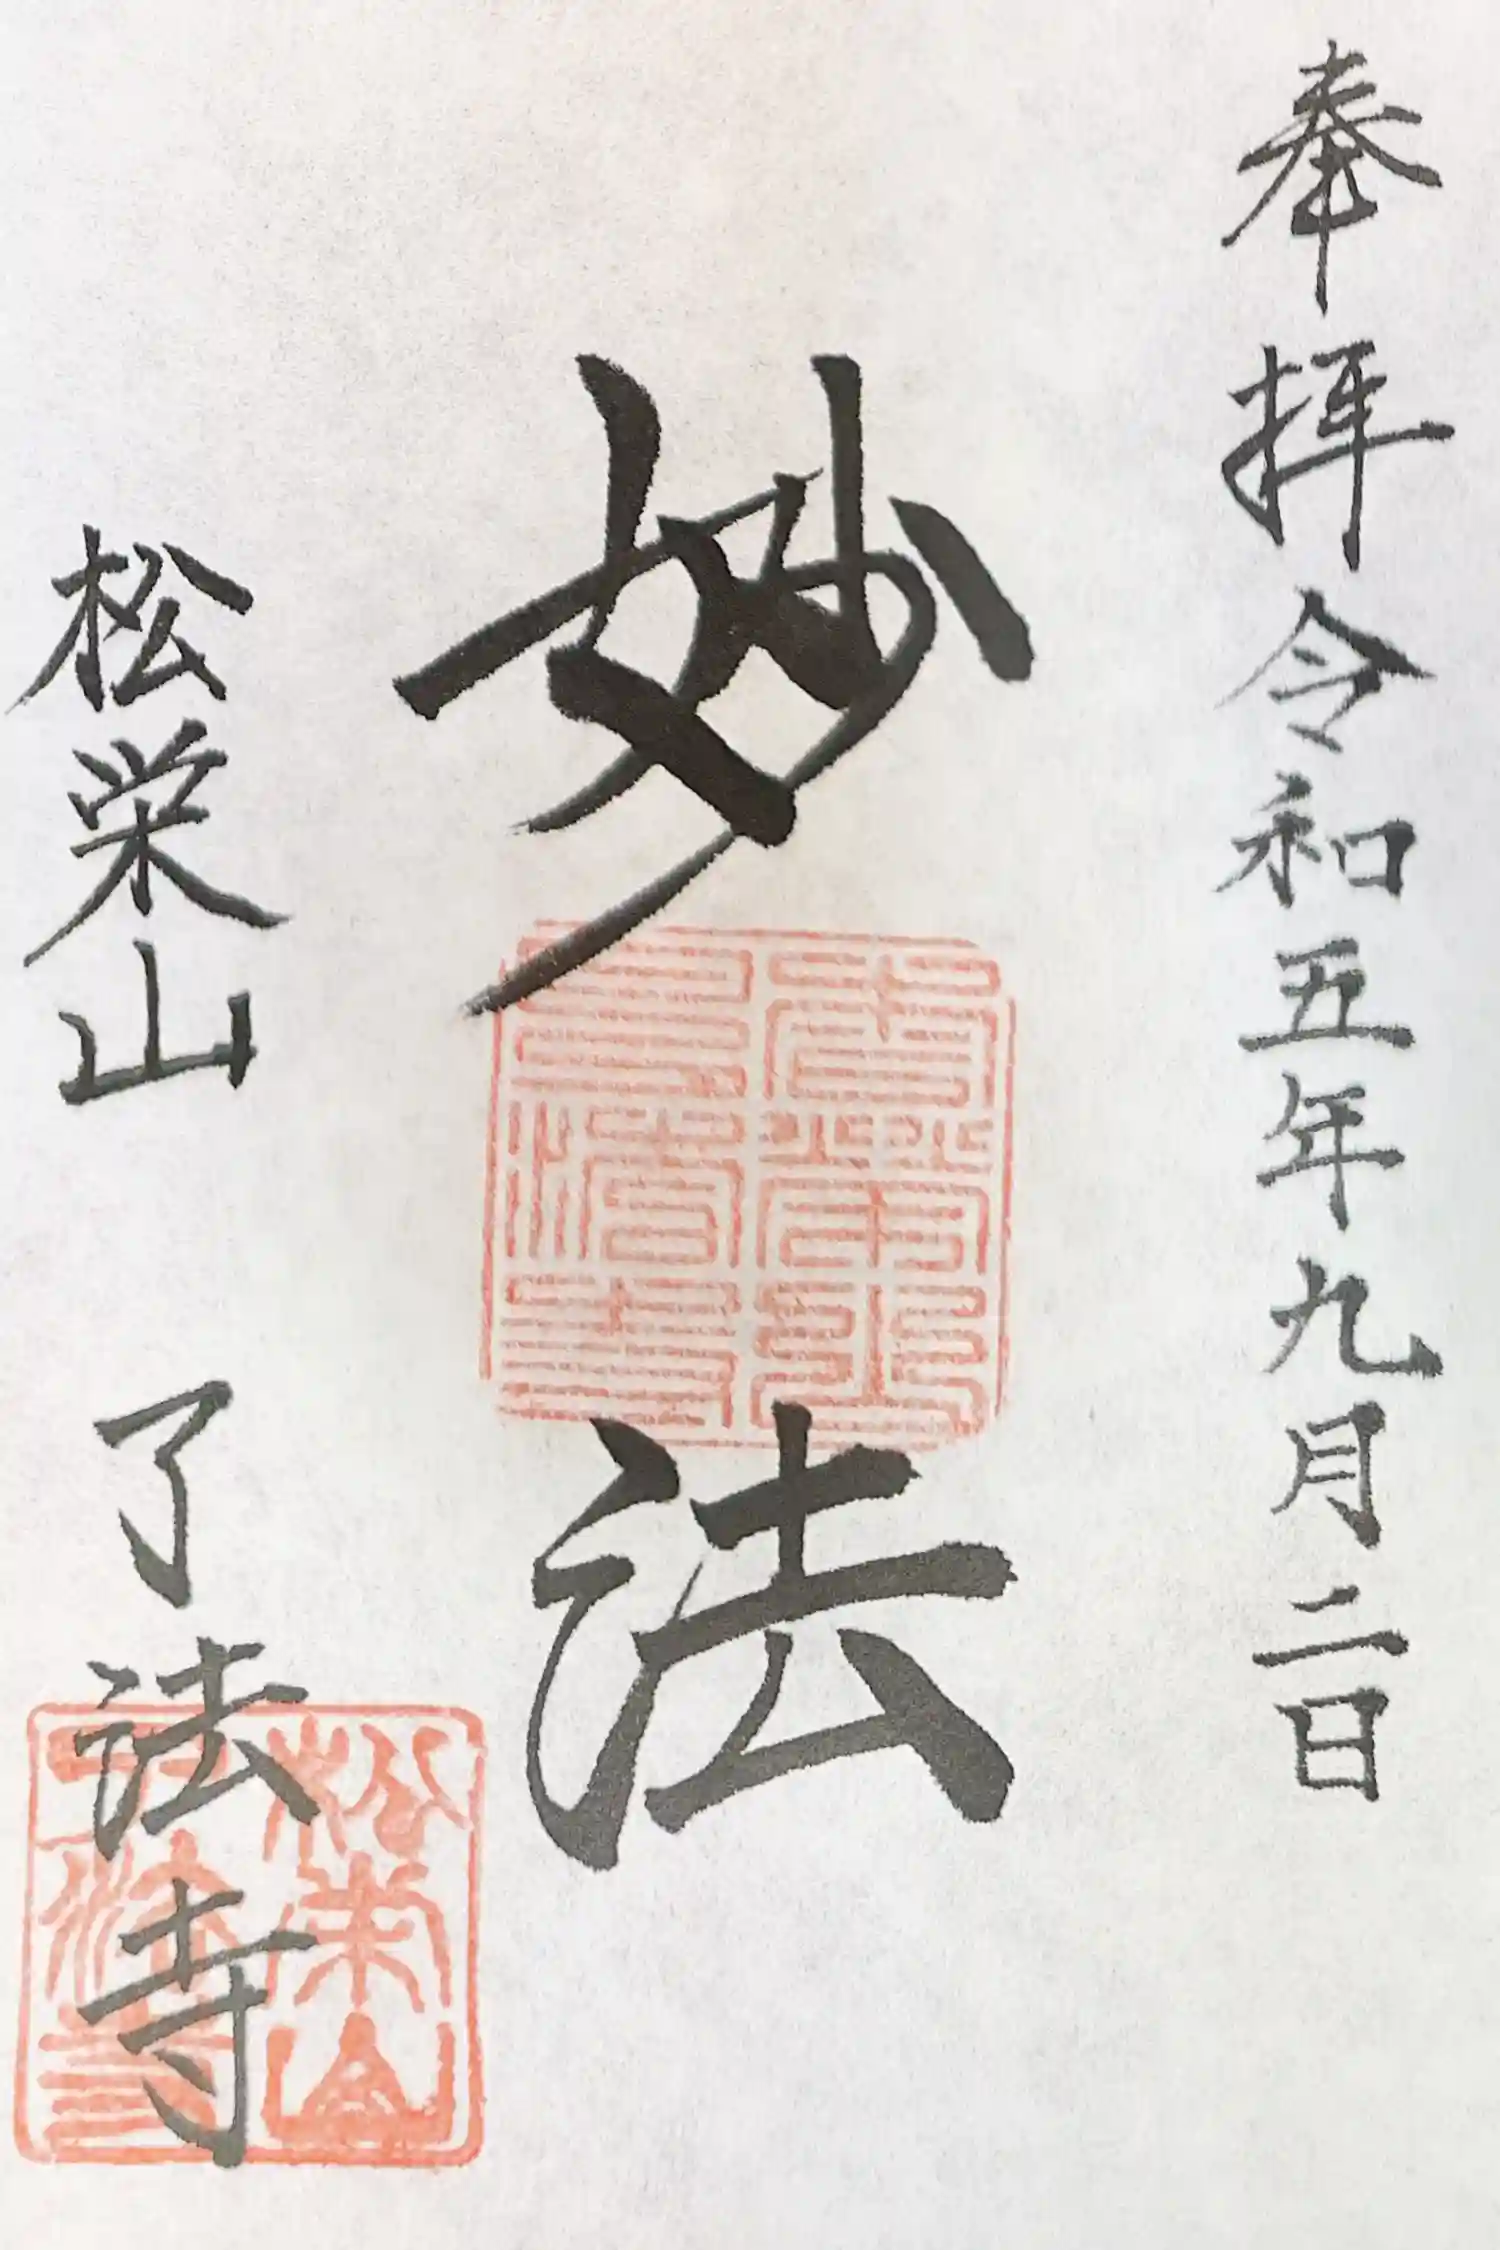 奉拝令和五年九月二日
妙法
松栄山 了法寺
松栄山
了法寺